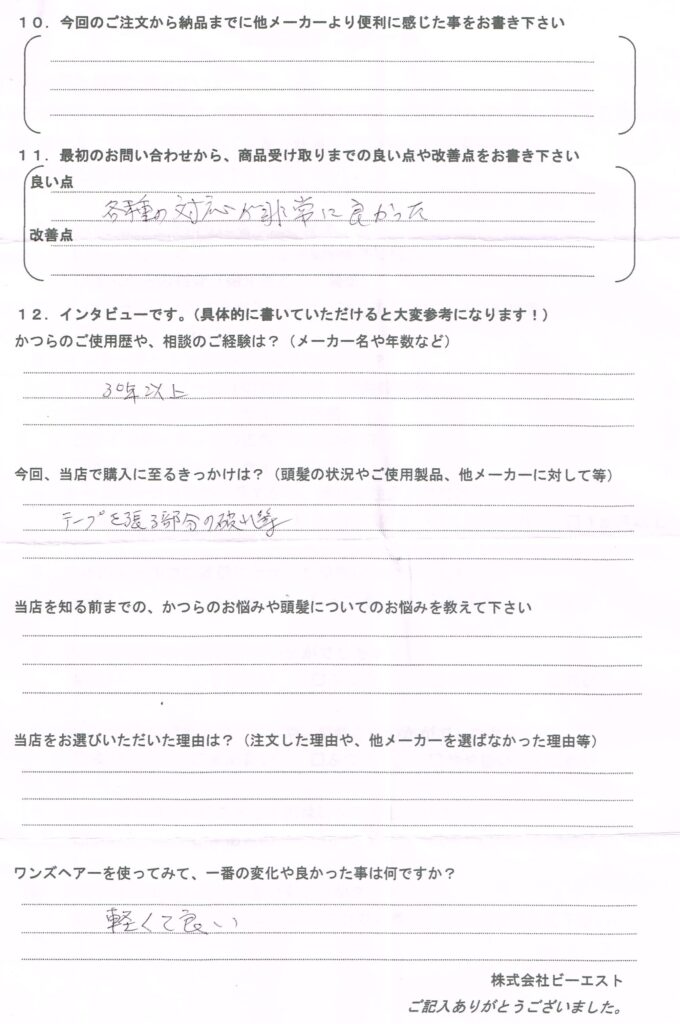 １０．今回のご注文から納品までに他メーカーより便利に感じた事をお書き下さい
１１．最初のお問い合わせから、商品受け取りまでの良い点や改善点をお書き下さい
良い点
各種の対応が非常に良かった
改善点
１２．インタビューです。（具体的に書いていただけると大変参考になります！）
かつらのご使用歴や、相談のご経験は？（メーカー名や年数など）
30年以上
今回、当店で購入に至るきっかけは？（頭髪の状況やご使用製品、他メーカーに対して等）
テープを張る部分の破れ等
当店を知る前までの、かつらのお悩みや頭髪についてのお悩みを教えて下さい
当店をお選びいただいた理由は？（注文した理由や、他メーカーを選ばなかった理由等）
ワンズヘアーを使ってみて、一番の変化や良かった事は何ですか？
軽くて良い
株式会社ビーエスト
ご記入ありがとうございました。